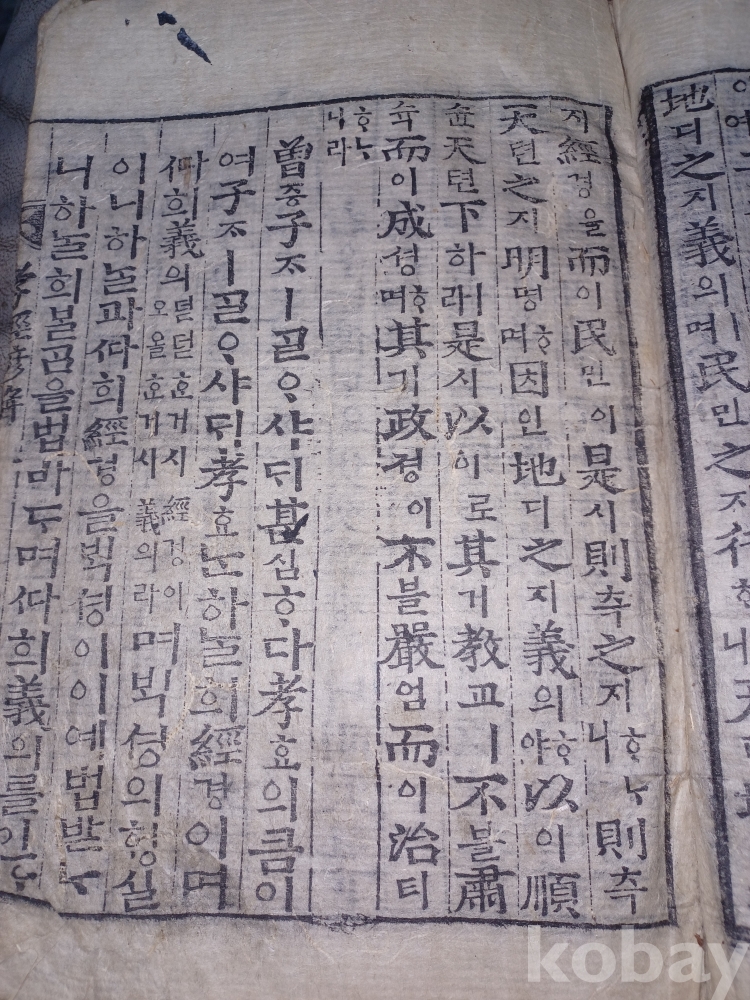 地디之지義의며民민之지行
지經경을而이民민이是시則측之지ᄒᆞᄂᆞ니則측
天텬之지明명ᄒᆞ며因인地디之지義의ᄒᆞ야以이順
슌天텬下하ㅣ라是시以이로其기敎교ㅣ不블肅
슉而이成셩ᄒᆞ며其기政졍이不블嚴엄而이治티
ᄒᆞᄂᆞ니라
曾증子ᄌᆞㅣᄀᆞᆯᄋᆞ샤ᄃᆡ甚심ᄒᆞ다孝효의큼이
여子ᄌᆞㅣᄀᆞᆯᄋᆞ샤ᄃᆡ孝효ᄂᆞᆫ하ᄂᆞᆯ희經경이며
ᄯᅡ희義의덛덛ᄒᆞᆫ거시經경이오올ᄒᆞᆫ거시義의라며ᄇᆡᆨ셩의ᄒᆡᆼ실
이니하ᄂᆞᆯ과ᄯᅡ희經경을ᄇᆡᆨ셩이이예법받ᄂᆞ
니하ᄂᆞᆯ희ᄇᆞᆯ곰을법바ᄃᆞ며ᄯᅡ희義의를인ᄒᆞ
孝經諺解
kobay